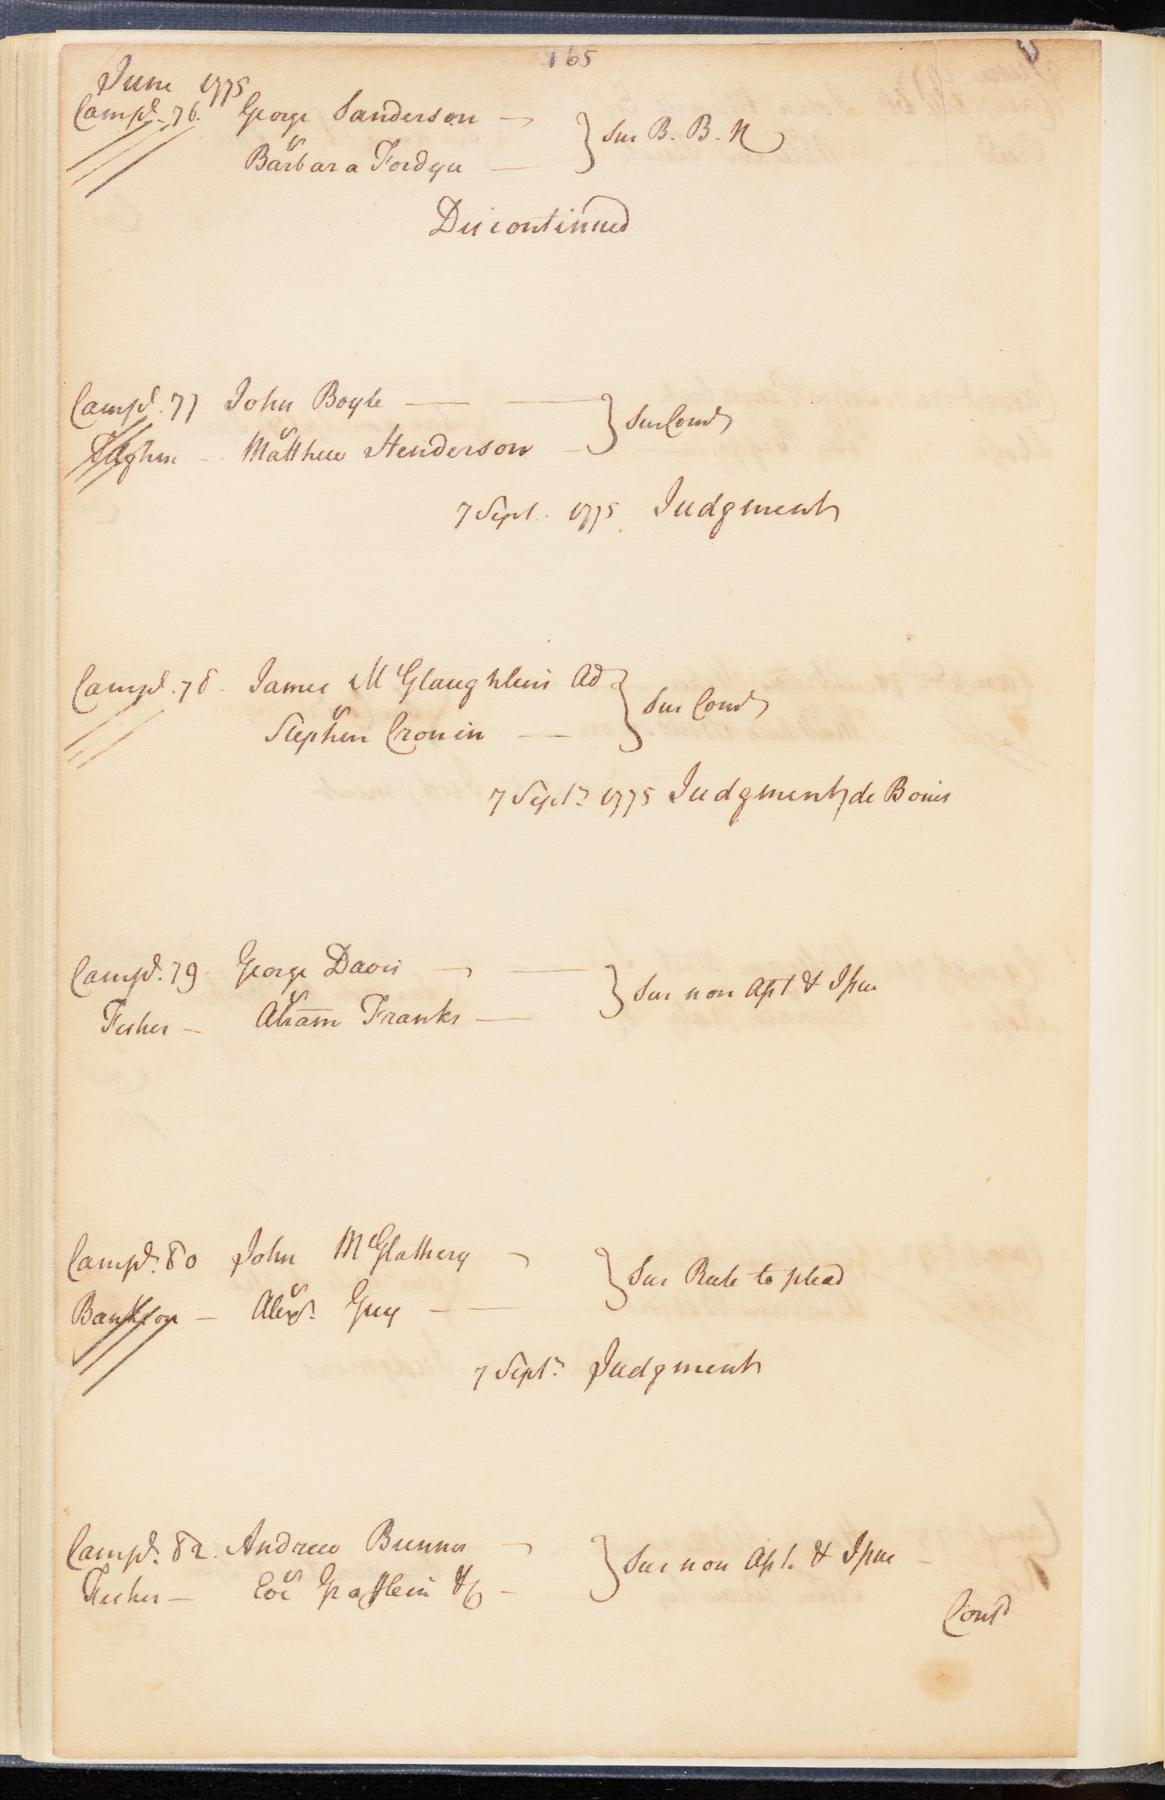 165
June 1775
Campl. 76. George Sanderson
vs
Barbara Fordyu
} Sur B. B. N
Discontinued
Campl. 77 John Boyle
vs
Tilghm Matthew Henderson
} Sur Cond
7 Sept. 1775 Judgment
Campl. 78. James McGlaughlein Ad
vs
Stephen Cronin
} Sur Cond
7 Sept. 1775 Judgment de Bonis
Campl. 79 George Davis
vs
Fisher Abram Franks
} Sur non Apt & Issue
Campl. 80 John McGlathery
vs
Bankson Alexr. Guy
} Sur Rule to plead
7 Sept. Judgment
Campl. 82. Andrew Bunner
vs
Fisher &c
} Sur non Apt. & Issue
Contd